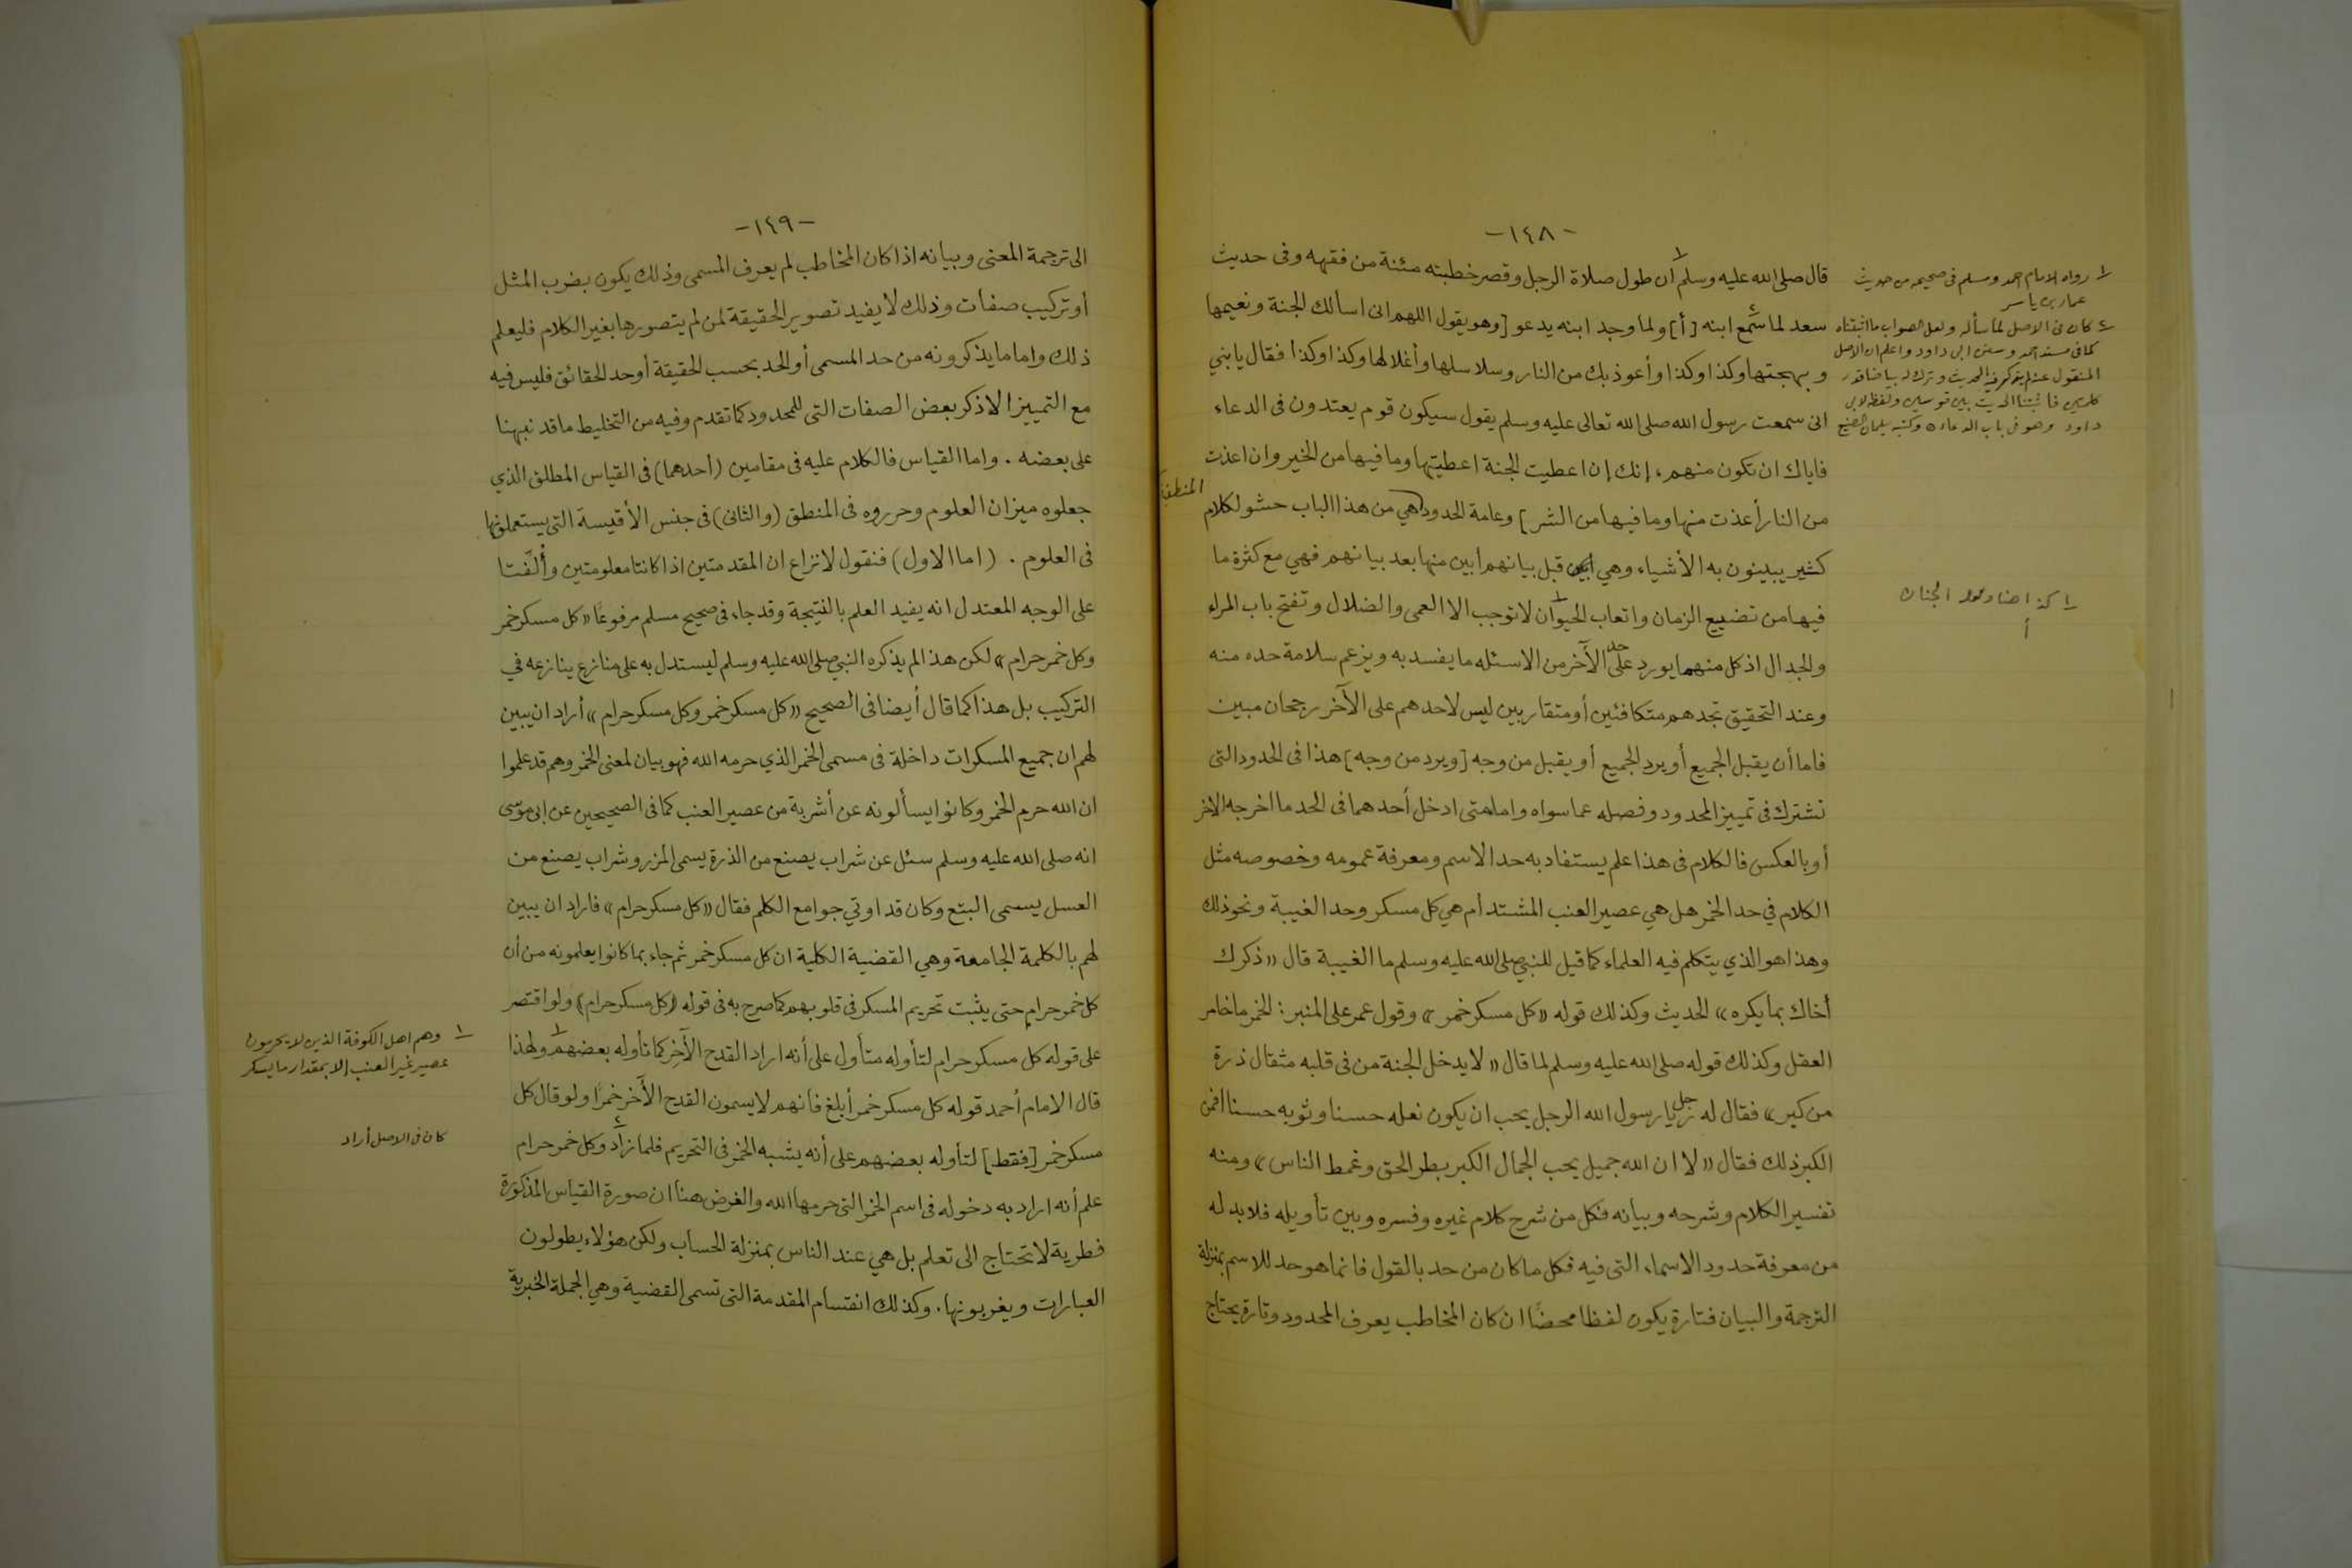 -١٤٨-
قال صلى الله عليه وسلم ١ ان طول صلاة الرجل وقصر خطبته مئنة من فقهه وفى حديث
سعد لما سمع ٢ ابنه [أ] ولما وجد ابنه يدعو [وهو يقول اللهم انى اسألك الجنة ونعيمها
وبهجتها وكذا وكذا وأعوذ بك من النار وسلاسلها وأغلالها وكذا وكذا فقال يا بني
انى سمعت رسول الله صلى الله تعالى عليه وسلم يقول سيكون قوم يعتدون فى الدعاء
فاياك ان تكون منهم، إنك إن اعطيت الجنة اعطيتها وما فيها من الخير وان اعذت
من النار أعذت منها وما فيها من الشر] وعامة الحدود المنطقية هي من هذا الباب حشو لكلام
كثير يبينون به الأشياء وهي قبل بيانهم أبين منها بعد بيانهم فهي مع كثرة ما
فيها من تضييع الزمان واتعاب الحيوان ١ لا توجب الا العمى والضلال وتفتح باب المراء
والجدال اذ كل منهما يورد على حد الآخر من الاسئله ما يفسد به ويزعم سلامة حده منه
وعند التحقيق تجدهم متكافئين أو متقاربين ليس لاحدهم على الآخر رجحان مبين
فاما أن يقبل الجميع أو يرد الجميع أو يقبل من وجه [ويرد من وجه] هذا فى الحدود التى
تشترك فى تمييز المحدود وفصله عما سواه واما متى ادخل أحدهما فى الحد ما اخرجه الاخر
أو بالعكس فالكلام فى هذا علم يستفاد به حد الاسم ومعرفة عمومه وخصوصه مثل
الكلام في حد الخمر هل هي عصير العنب المشتد أم هي كل مسكر وحد الغيبة ونحو ذلك
وهذا هو الذي يتكلم فيه العلماء كما قيل للنبي صلى الله عليه وسلم ما الغيبة قال «ذكرك
أخاك بما يكره» الحديث وكذلك قوله «كل مسكر خمر» وقول عمر على المنبر: الخمر ما خامر
العقل وكذلك قوله صلى الله عليه وسلم لما قال «لا يدخل الجنة من فى قلبه مثقال ذرة
من كبر» فقال له رجل يا رسول الله الرجل يحب ان يكون نعله حسنا وثوبه حسنا افمن
الكبر ذلك فقال «لا ان الله جميل يحب الجمال الكبر بطر الحق وغمط الناس» ومنه
تفسير الكلام وشرحه وبيانه فكل من شرح كلام غيره وفسره وبين تأويله فلا بد له
من معرفة حدود الاسماء التى فيه فكل ما كان من حد بالقول فانما هو حد للاسم بمنزلة
الترجمة والبيان فتارة يكون لفظا محضًا ان كان المخاطب يعرف المحدود وتارة يحتاج
١ رواه الامام احمد ومسلم فى صحيحه من حديث
عمار بن ياسر
٢ كان فى الاصل لما سأله ولعل الصواب ما اثبتناه
كما فى مسند احمد وسنن ابى داود واعلم ان الاصل
المنقول عنه لم يذكر فيه الحديث وترك له بياضا قدر
كلمتين فأثبتنا الحديث بين قوسين ولفظه لابى
داود وهو فى باب الدعاء وكتبه سليمان الصنيع
١ كذا
-١٤٩-
الى ترجمة المعنى وبيانه اذا كان المخاطب لم يعرف المسمى وذلك يكون بضرب المثل
أو تركيب صفات وذلك لا يفيد تصوير الحقيقة لمن لم يتصورها بغير الكلام فليعلم
ذلك واما ما يذكرونه من حد المسمى أو الحد بحسب الحقيقة أو حد الحقائق فليس فيه
مع التمييز الا ذكر بعض الصفات التى للمحدود كما تقدم وفيه من التخليط ما قد نبهنا
على بعضه . واما القياس فالكلام عليه فى مقامين (أحدهما) فى القياس المطلق الذي
جعلوه ميزان العلوم وحرروه فى المنطق (والثانى) فى جنس الأقيسة التى يستعملونها
فى العلوم . (اما الاول) فنقول لا نزاع ان المقدمتين اذا كانتا معلومتين وأُلِّفتا
على الوجه المعتدل انه يفيد العلم بالنتيجة وقد جاء فى صحيح مسلم مرفوعًا «كل مسكر خمر
وكل خمر حرام» لكن هذا لم يذكره النبي صلى الله عليه وسلم ليستدل به على منازع ينازعه في
التركيب بل هذا كما قال أيضا فى الصحيح «كل مسكر خمر وكل مسكر حرام» أراد ان يبين
لهم ان جميع المسكرات داخلة فى مسمى الخمر الذي حرمه الله فهو بيان لمعنى الخمر وهم قد علموا
ان الله حرم الخمر وكانوا يسألونه عن أشربة من عصير العنب كما فى الصحيحين عن ابى موسى
انه صلى الله عليه وسلم سئل عن شراب يصنع من الذرة يسمى المزر وشراب يصنع من
العسل يسمى البتع وكان قد اوتي جوامع الكلم فقال «كل مسكر حرام» فاراد ان يبين
لهم بالكلمة الجامعة وهي القضية الكلية ان كل مسكر خمر ثم جاء بما كانوا يعلمونه من أن
كل خمر حرام حتى يثبت تحريم المسكر فى قلوبهم كما صرح به فى قوله «كل مسكر حرام» ولو اقتصر
على قوله كل مسكر حرام لتأوله متأول على أنه اراد القدح الآخر كما تأوله بعضهم ١ ولهذا
قال الامام أحمد قوله كل مسكر خمر أبلغ فانهم لا يسمون القدح الآخر خمرًا ولو قال كل
مسكر خمر [فقط] لتأوله بعضهم على أنه يشبه الخمر فى التحريم فلما زاد ٢ وكل خمر حرام
علم أنه اراد به دخوله فى اسم الخمر التى حرمها الله والغرض هنا ان صورة القياس المذكورة
فطرية لا تحتاج الى تعلم بل هي عند الناس بمنزلة الحساب ولكن هؤلاء يطولون
العبارات ويغربونها. وكذلك انقسام المقدمة التى تسمى القضية وهي الجملة الخبرية
١ وهم اهل الكوفة الذين لا يحرمون
عصير غير العنب إلا بمقدار ما يسكر
كان فى الاصل أراد